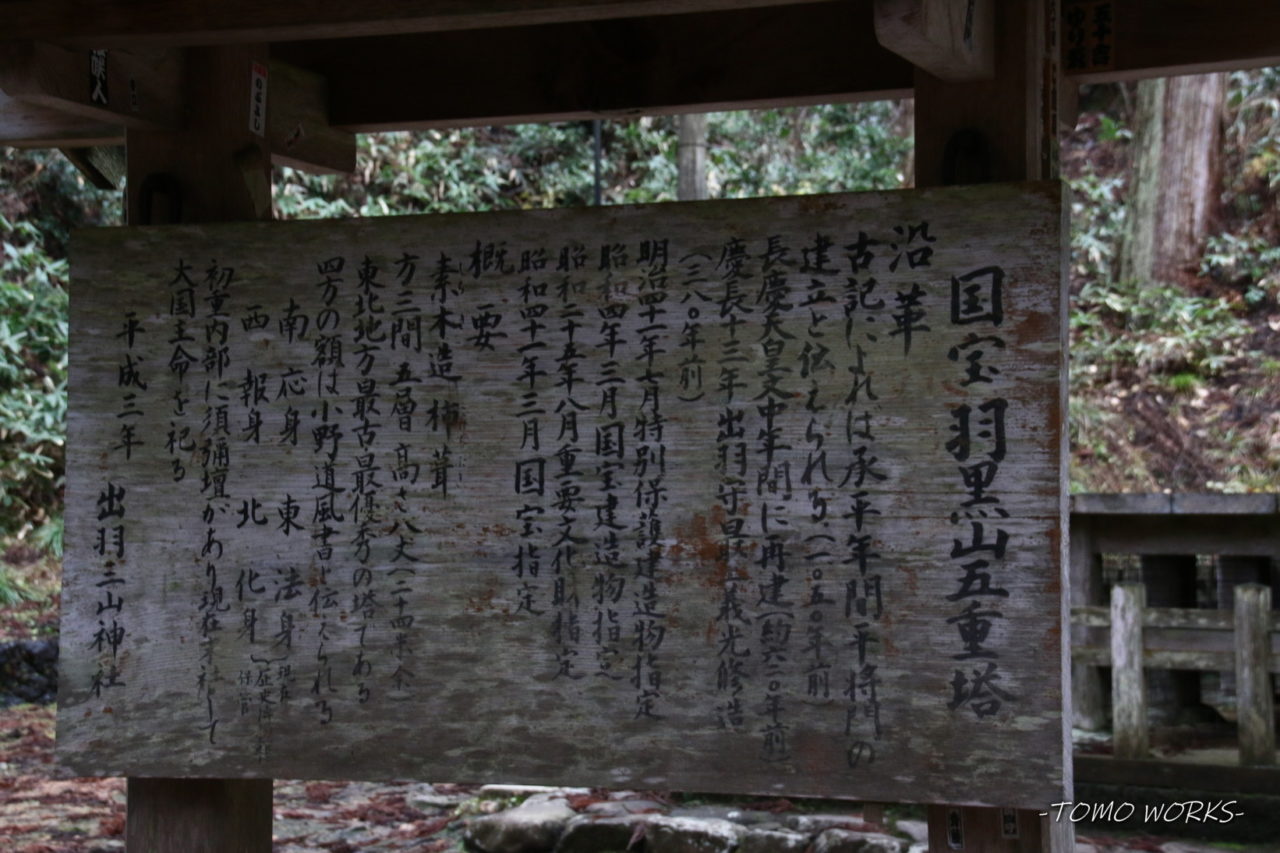 国宝羽黒山五重塔
沿革
古記によれは承平年間平将門の
建立と伝えられる(一〇五〇年前)
長慶天皇文中年間に再建(約六〇〇年前)
慶長十三年出羽守最上義光修造
(三八〇年前)
明治四十一年七月特別保護建造物指定
昭和四年三月国宝建造物指定
昭和二十五年八月重要文化財指定
昭和四十一年三月国宝指定
概要
素木造 柿葺
方三間 五層 高さ八丈(二十四米余)
東北地方最古最優秀の塔てある
四方の額は小野道風書と伝えられる
南 応身 東 法身
西 報身 北 化身
現在
保管
初重内部に須彌壇があり現在
して
大国主命を祀る
平成三年 出羽三山神社
-TOMO WORKS-